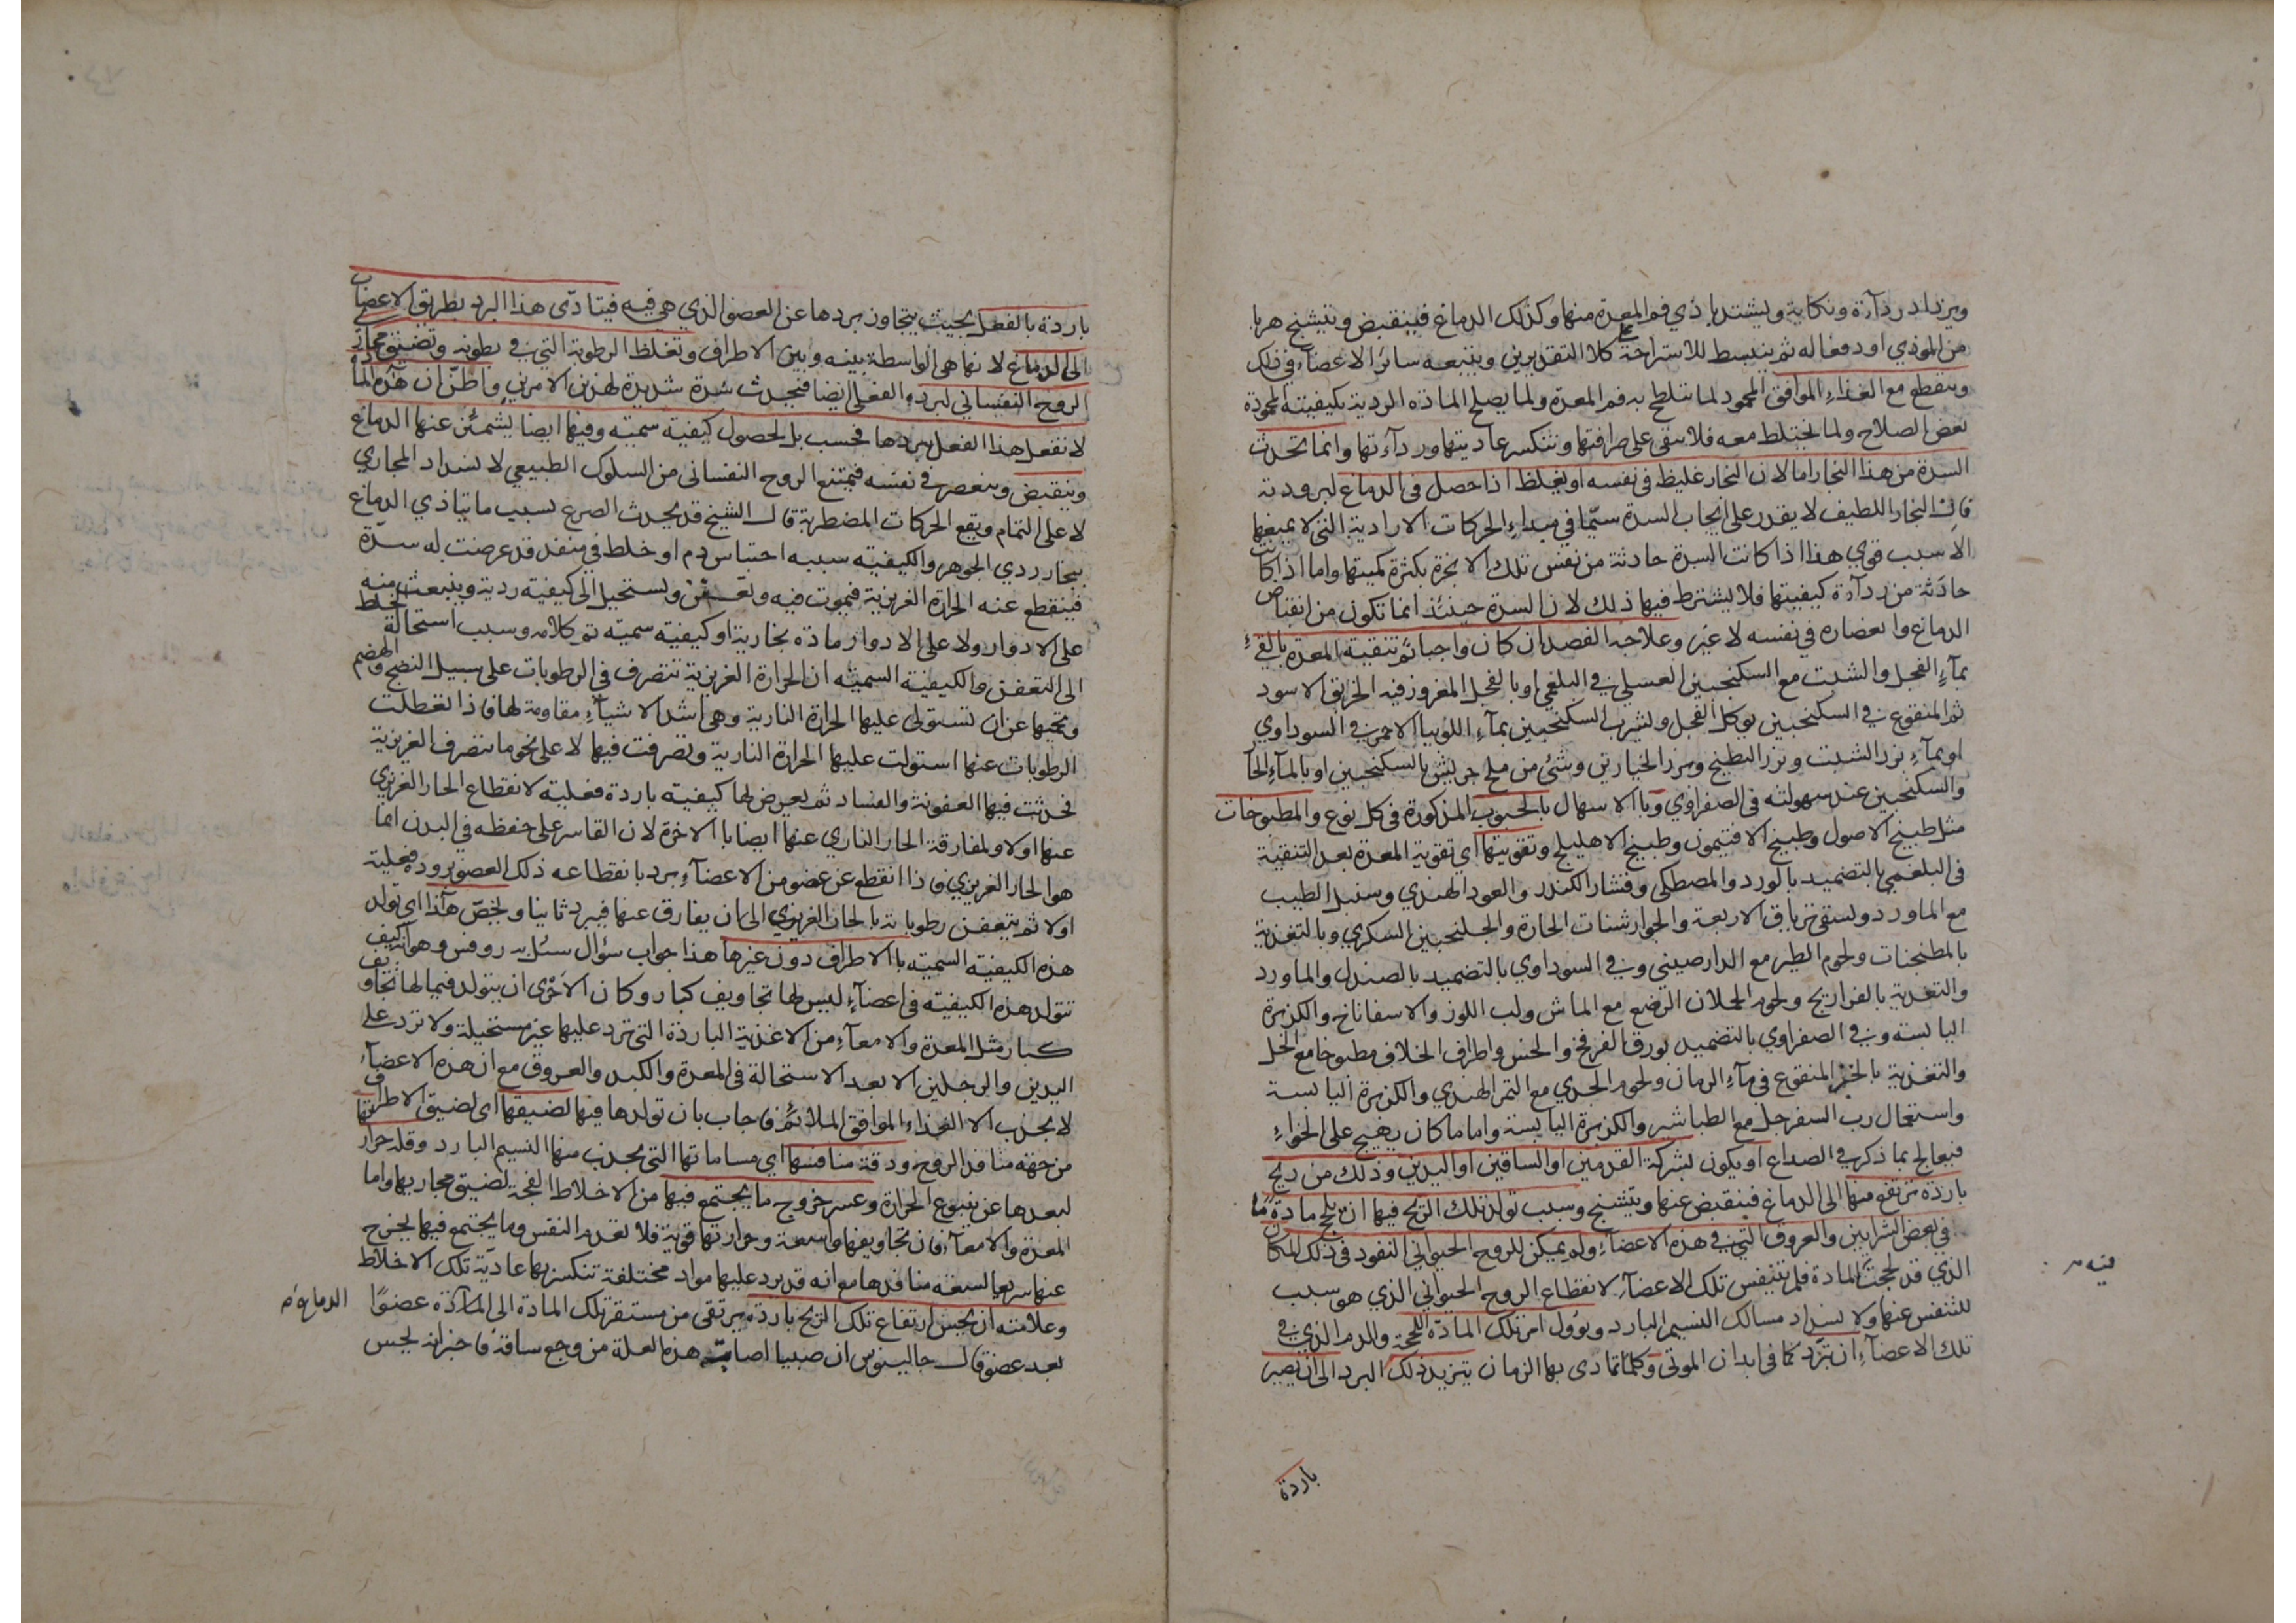 ويزداد ردآءة ونكاية ويشتد باذي فم المعدة منها وكذلك الدماغ فينقبض ويتشنج هربا
من الموذي او دفعا له ثم ينبسط للاستراحة على كلا التقديرين ويتبعه سائر الاعضاء في ذلك
وينقطع مع الغذاء الموافق المحمود لما يتلطخ به فم المعدة ولما يصلح المادة الردية بكيفيته المحمودة
بعض الصلاح ولما يختلط معه فلا يبقى على صرافتها وتنكسر عاديتها وردآءتها وانما تحدث
السدة من هذا البخار اما لان البخار غليظ في نفسه او يغلظ اذا حصل في الدماغ لبرودته
فان البخار اللطيف لا يقدر على ايجاب السدة سيّما في مبداء الحركات الارادية التي لا يمنعها
الا سبب قوي هذا اذا كانت السدة حادثة من نفس تلك الابخرة بكثرة كميتها واما اذا كانت
حادثة من ردآءة كيفيتها فلا يشترط فيها ذلك لان السدة حينئذ انما تكون من انقباض
الدماغ وانعصاره في نفسه لا غير وعلاجه الفصد ان كان واجبا ثم تنقية المعدة بالقيء
بمآء الفجل والشبت مع السكنجبين العسلي في البلغمي او بالفجل المغروز فيه الخربق الاسود
ثم المنقوع في السكنجبين يوكل الفجل ويشرب السكنجبين بمآء اللوبيا الاحمر في السوداوي
او بمآء بزر الشبت وبزر البطيخ وبزر الخيارين وشئ من ملح جريش بالسكنجبين او بالمآء الحار
والسكنجبين عند سهولته في الصفراوي وبالاسهال بالحبوب المذكورة في كل نوع والمطبوخات
مثل طبيخ الاصول وطبيخ الافتيمون وطبيخ الاهليلج وتقويتها اي تقوية المعدة بعد التنقية
في البلغمي بالتضميد بالورد والمصطكي وقشار الكندر والعود الهندي وسنبل الطيب
مع الماورد وسقي ترياق الاربعة والجوارشنات الحارة والجلنجبين السكري وبالتغذية
بالمطجنات ولحوم الطير مع الدارصيني وفي السوداوي بالتضميد بالصندل والماورد
والتغذية بالفراريج ولحوم الحملان الرضع مع الماش ولب اللوز والاسفاناخ والكزبرة
اليابسة وفي الصفراوي بالتضميد بورق الفرفخ والخس واطراف الخلاف مطبوخا مع الخل
والتغذية بالخبز المنقوع في مآء الرمان ولحوم الجدي مع التمر الهندي والكزبرة اليابسة
واستعمال رب السفرجل مع الطباشير والكزبرة اليابسة واما ما كان يهيج على الخواء
فيعالج بما ذكر في الصداع او يكون بشركة القدمين او الساقين او اليدين وذلك من ريح
باردة ترتفع منها الى الدماغ فينقبض عنها ويتشنج وسبب تولد تلك الريح فيها ان تلحج مادة ما
في بعض الشرايين والعروق التي في هذه الاعضاء ولم يمكن للروح الحيواني النفوذ في ذلك المكان
الذي قد لحجت المادة فلم تتنفس تلك الاعضآء لانقطاع الروح الحيواني الذي هو سبب
فيه م
للتنفس عنها ولانسداد مسالك النسيم البارد ويؤول امر تلك المادة اللحجة والدم الذي في
تلك الاعضآء ان تبرد كما في ابدان الموتى وكلما تمادى بها الزمان يتزيد ذلك البرد الى ان يصير
باردة
باردة بالفعل بحيث يتجاوز بردها عن العضو الذي هي فيه فيتادّى هذا البرد بطريق الاعصاب
الى الدماغ لانها هي الواسطة بينه وبين الاطراف وتغلظ الرطوبة التي في بطونه وتضيق مجاري
الروح النفساني لبرده الفعلي ايضا فتحدث سدة شديدة لهذين الامرين واظنّ ان هذه المادة
لا تفعل هذا الفعل ببردها فحسب بل لحصول كيفية سمية وفيها ايضا يشمئز عنها الدماغ
وينقبض وينعصر في نفسه فيمتنع الروح النفساني من السلوك الطبيعي لانسداد المجاري
لا على التمام ويقع الحركات المضطربة قال الشيخ قد يحدث الصرع بسبب ما يتاذي الدماغ
ببخار ردي الجوهر والكيفية سببه احتباس دم او خلط في منفذ قد عرضت له سدّة
فينقطع عنه الحرارة الغريزية فيموت فيه ويتعفن ويستحيل الى كيفية ردية وينبعث منه
على الادوار ولا على الادوار مادة بخارية او كيفية سمية تم كلامه وسبب استحالة الخلط
الى التعفن والكيفية السمية ان الحرارة الغريزية تتصرف في الرطوبات على سبيل النضج والهضم
وتحميها عن ان تستولي عليها الحرارة النارية وهي اشد الاشيآء مقاومة لها فاذا تعطلت
الرطوبات عنها استولت عليها الحرارة النارية وتصرفت فيها لا على نحو ما تتصرف الغريزية
فحدثت فيها العفونة والفساد ثم يعرض لها كيفية باردة فعلية لانقطاع الحار الغريزي
عنها اولا ولمفارقة الحار الناري عنها ايضا بالاخرة لان القاسر على حفظه في البدن انما
هو الحار الغريزي واذا انقطع عن عضو من الاعضآء برد بانقطاعه ذلك العضو برودة فعلية
اولا ثم يتعفن رطوباته بالحار الغريزي الى ان يفارق عنها فيبرد ثانيا ويخصّ هذا اي تولد
هذه الكيفية السمية بالاطراف دون غيرها هذا جواب سؤال سئل به روفس وهو انه كيف
تتولد هذه الكيفية في اعضآء ليس لها تجاويف كبار وكان الاَحْرى ان يتولد فيما لها تجاويف
كبار مثل المعدة والامعآء من الاغذية الباردة التي ترد عليها غير مستحيلة ولا ترد على
اليدين والرجلين الا بعد الاستحالة في المعدة والكبد والعروق مع ان هذه الاعضآء
لا تجذب الا الغذاء الموافق الملائم فاجاب بان تولدها فيها لضيقها اي لضيق الاطراف
من جهة منافذ الروح ودقة منافسها اي مساماتها التي يجذب منها النسيم البارد وقلة حرارتها
لبعدها عن ينبوع الحرارة وعسر خروج ما يجتمع فيها من الاخلاط الفجة لضيق مجاريها واما
المعدة والامعآء فان تجاويفها واسعة وحرارتها قوية فلا تعدم النفس وما يجتمع فيها يخرج
عنها سريعا لسعة منافذها مع انه قد يرد عليها مواد مختلفة تنكسر بها عاديّة تلك الاخلاط
وعلامته ان يحس ارتفاع تلك الريح باردة يرتقي من مستقر تلك المادة الى الدماغ عضوًا
الدماغ م
بعد عضو قال جالينوس ان صبيا اصابته هذه العلة من وجع ساقه فاخبر انه يحس